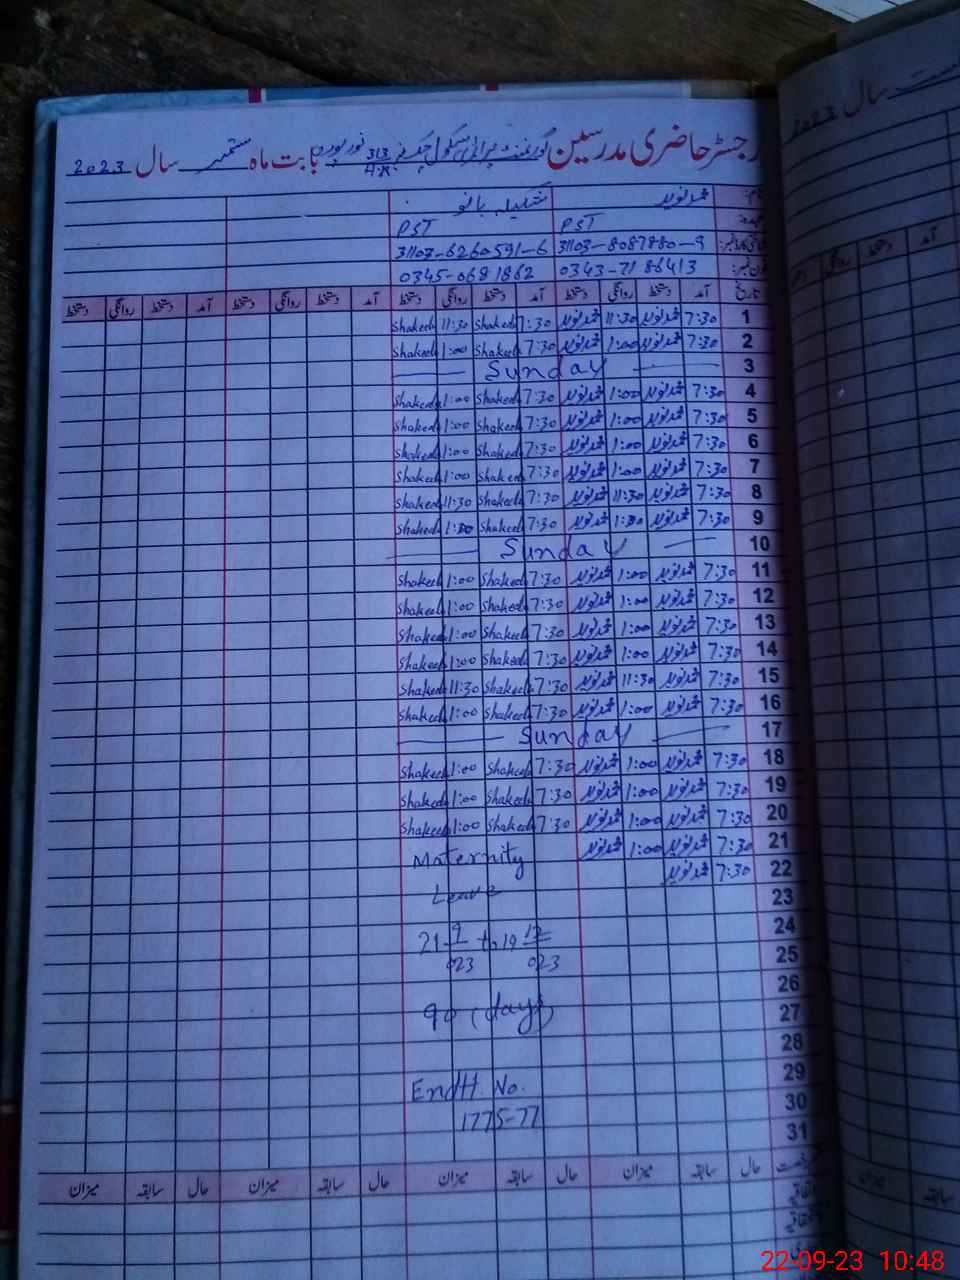 رجسٹر حاضری مدرسین گورنمنٹ پرائمری سکول چک نمبر 313 نور پور بابت ماہ ستمبر سال 2023
نام: محمد نوید شکیلہ بانو
عہدہ: PST PST
شناختی کارڈ نمبر: 31103-8087880-9 31103-6260591-6
فون نمبر: 0343-7186413 0345-0681862
تاریخ آمد دستخط روانگی دستخط آمد دستخط روانگی دستخط آمد دستخط روانگی دستخط آمد دستخط روانگی دستخط
1 7:30 محمد نوید 11:30 محمد نوید 7:30 Shakeela 11:30 Shakeela
2 7:30 محمد نوید 1:00 محمد نوید 7:30 Shakeela 1:00 Shakeela
3 Sunday
4 7:30 محمد نوید 1:00 محمد نوید 7:30 Shakeela 1:00 Shakeela
5 7:30 محمد نوید 1:00 محمد نوید 7:30 Shakeela 1:00 Shakeela
6 7:30 محمد نوید 1:00 محمد نوید 7:30 Shakeela 1:00 Shakeela
7 7:30 محمد نوید 1:00 محمد نوید 7:30 Shakeela 1:00 Shakeela
8 7:30 محمد نوید 11:30 محمد نوید 7:30 Shakeela 11:30 Shakeela
9 7:30 محمد نوید 1:00 محمد نوید 7:30 Shakeela 1:00 Shakeela
10 Sunday
11 7:30 محمد نوید 1:00 محمد نوید 7:30 Shakeela 1:00 Shakeela
12 7:30 محمد نوید 1:00 محمد نوید 7:30 Shakeela 1:00 Shakeela
13 7:30 محمد نوید 1:00 محمد نوید 7:30 Shakeela 1:00 Shakeela
14 7:30 محمد نوید 1:00 محمد نوید 7:30 Shakeela 1:00 Shakeela
15 7:30 محمد نوید 11:30 محمد نوید 7:30 Shakeela 11:30 Shakeela
16 7:30 محمد نوید 1:00 محمد نوید 7:30 Shakeela 1:00 Shakeela
17 Sunday
18 7:30 محمد نوید 1:00 محمد نوید 7:30 Shakeela 1:00 Shakeela
19 7:30 محمد نوید 1:00 محمد نوید 7:30 Shakeela 1:00 Shakeela
20 7:30 محمد نوید 1:00 محمد نوید 7:30 Shakeela 1:00 Shakeela
21 7:30 محمد نوید 1:00 محمد نوید Maternity
22 7:30 محمد نوید
23 Leave
24
25 21-9/023 to 19 12/023
26
27 90 (days)
28
29
30 Endtt. No.
31 1775-77
حال سابقہ میزان حال سابقہ میزان حال سابقہ میزان حال سابقہ میزان
سال 2023
آمد دستخط روانگی
میزان سابقہ
22-09-23 10:48